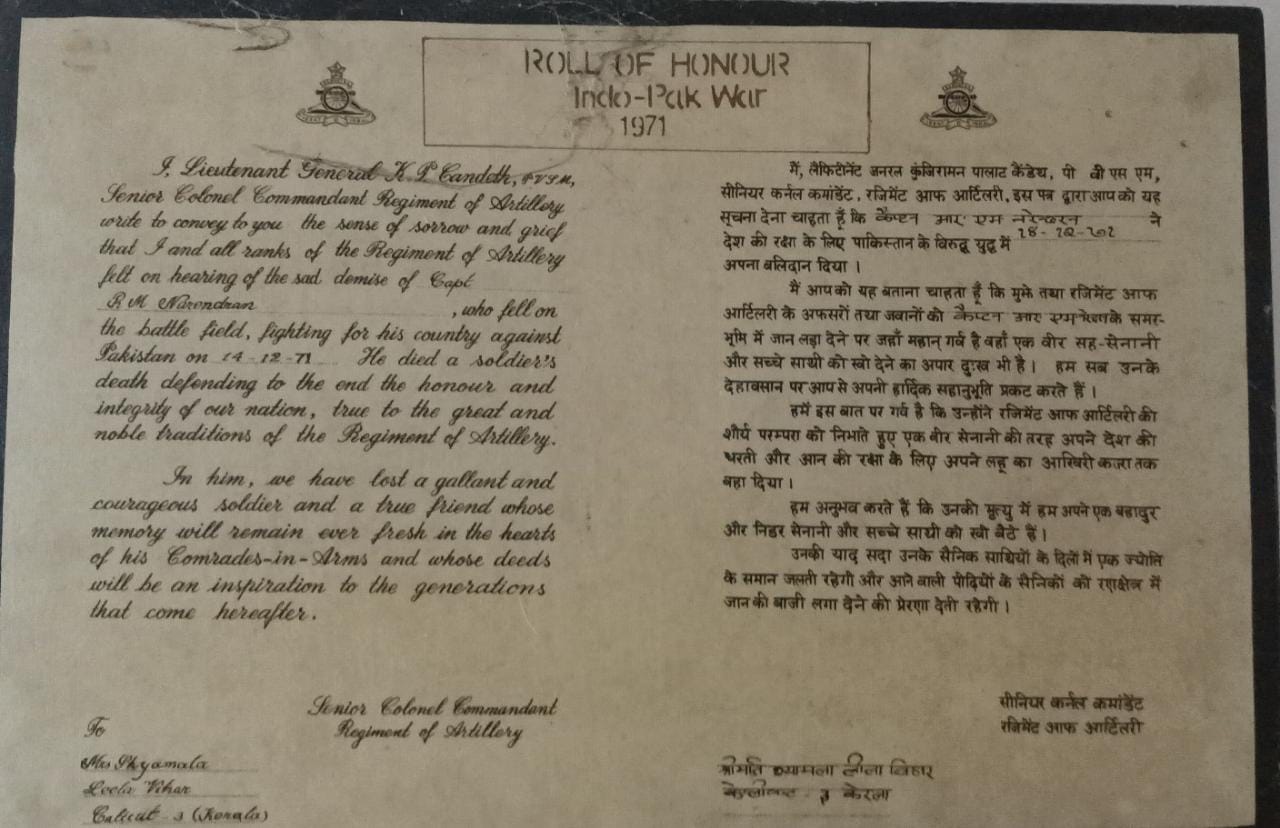 ROLL OF HONOUR
Indo-Pak War
1971
I, Lieutenant General K. P Candeth, PVSM,
Senior Colonel Commandant Regiment of Artillery
write to convey to you the sense of sorrow and grief
that I and all ranks of the Regiment of Artillery
felt on hearing of the sad demise of Capt
R M Narendran, who fell on
the battle field, fighting for his country against
Pakistan on 14-12-71 He died a soldier's
death defending to the end the honour and
integrity of our nation, true to the great and
noble traditions of the Regiment of Artillery.
In him, we have lost a gallant and
courageous soldier and a true friend whose
memory will remain ever fresh in the hearts
of his Comrades-in-Arms and whose deeds
will be an inspiration to the generations
that come hereafter.
Senior Colonel Commandant
Regiment of Artillery
To
Mrs Shyamala
Leela Vihar
Calicut - 3 (Kerala)
मैं, लैफिटीनेंट जनरल कुंजिरामन पालाट कैंडेथ, पी वी एस एम,
सीनियर कर्नल कमांडेंट, रजिमेंट आफ आर्टिलरी, इस पत्र द्वारा आप को यह
सूचना देना चाहता हूँ कि कैप्टन आर एम नरेन्द्रन ने
देश की रक्षा के लिए पाकिस्तान के विरुद्ध युद्ध में
अपना बलिदान दिया ।
मैं आपको यह बताना चाहता हूँ कि मुझे तथा रजिमेंट आफ
आर्टिलरी के अफसरों तथा जवानों को कैप्टन आर एम के समर-
भूमि में जान लड़ा देने पर जहाँ महान् गर्व है वहाँ एक वीर सह-सेनानी
और सच्चे साथी को खो देने का अपार दुःख भी है । हम सब उनके
देहावसान पर आप से अपनी हार्दिक सहानुभूति प्रकट करते हैं ।
हमें इस बात पर गर्व है कि उन्होंने रजिमेंट आफ आर्टिलरी की
शौर्य परम्परा को निभाते हुए एक वीर सेनानी की तरह अपने देश की
धरती और आन की रक्षा के लिए अपने लहू का आखिरी कतरा तक
बहा दिया ।
हम अनुभव करते हैं कि उनकी मृत्यु में हम अपने एक बहादुर
और निडर सेनानी और सच्चे साथी को खो बैठे हैं ।
उनकी याद सदा उनके सैनिक साथियों के दिलों में एक ज्योति
के समान जलती रहेगी और आने वाली पीढ़ियों के सैनिकों को रणक्षेत्र में
जान की बाजी लगा देने की प्रेरणा देती रहेगी ।
सीनियर कर्नल कमांडेंट
रजिमेंट आफ आर्टिलरी
श्रीमति श्यामला लीला विहार
3 केरला